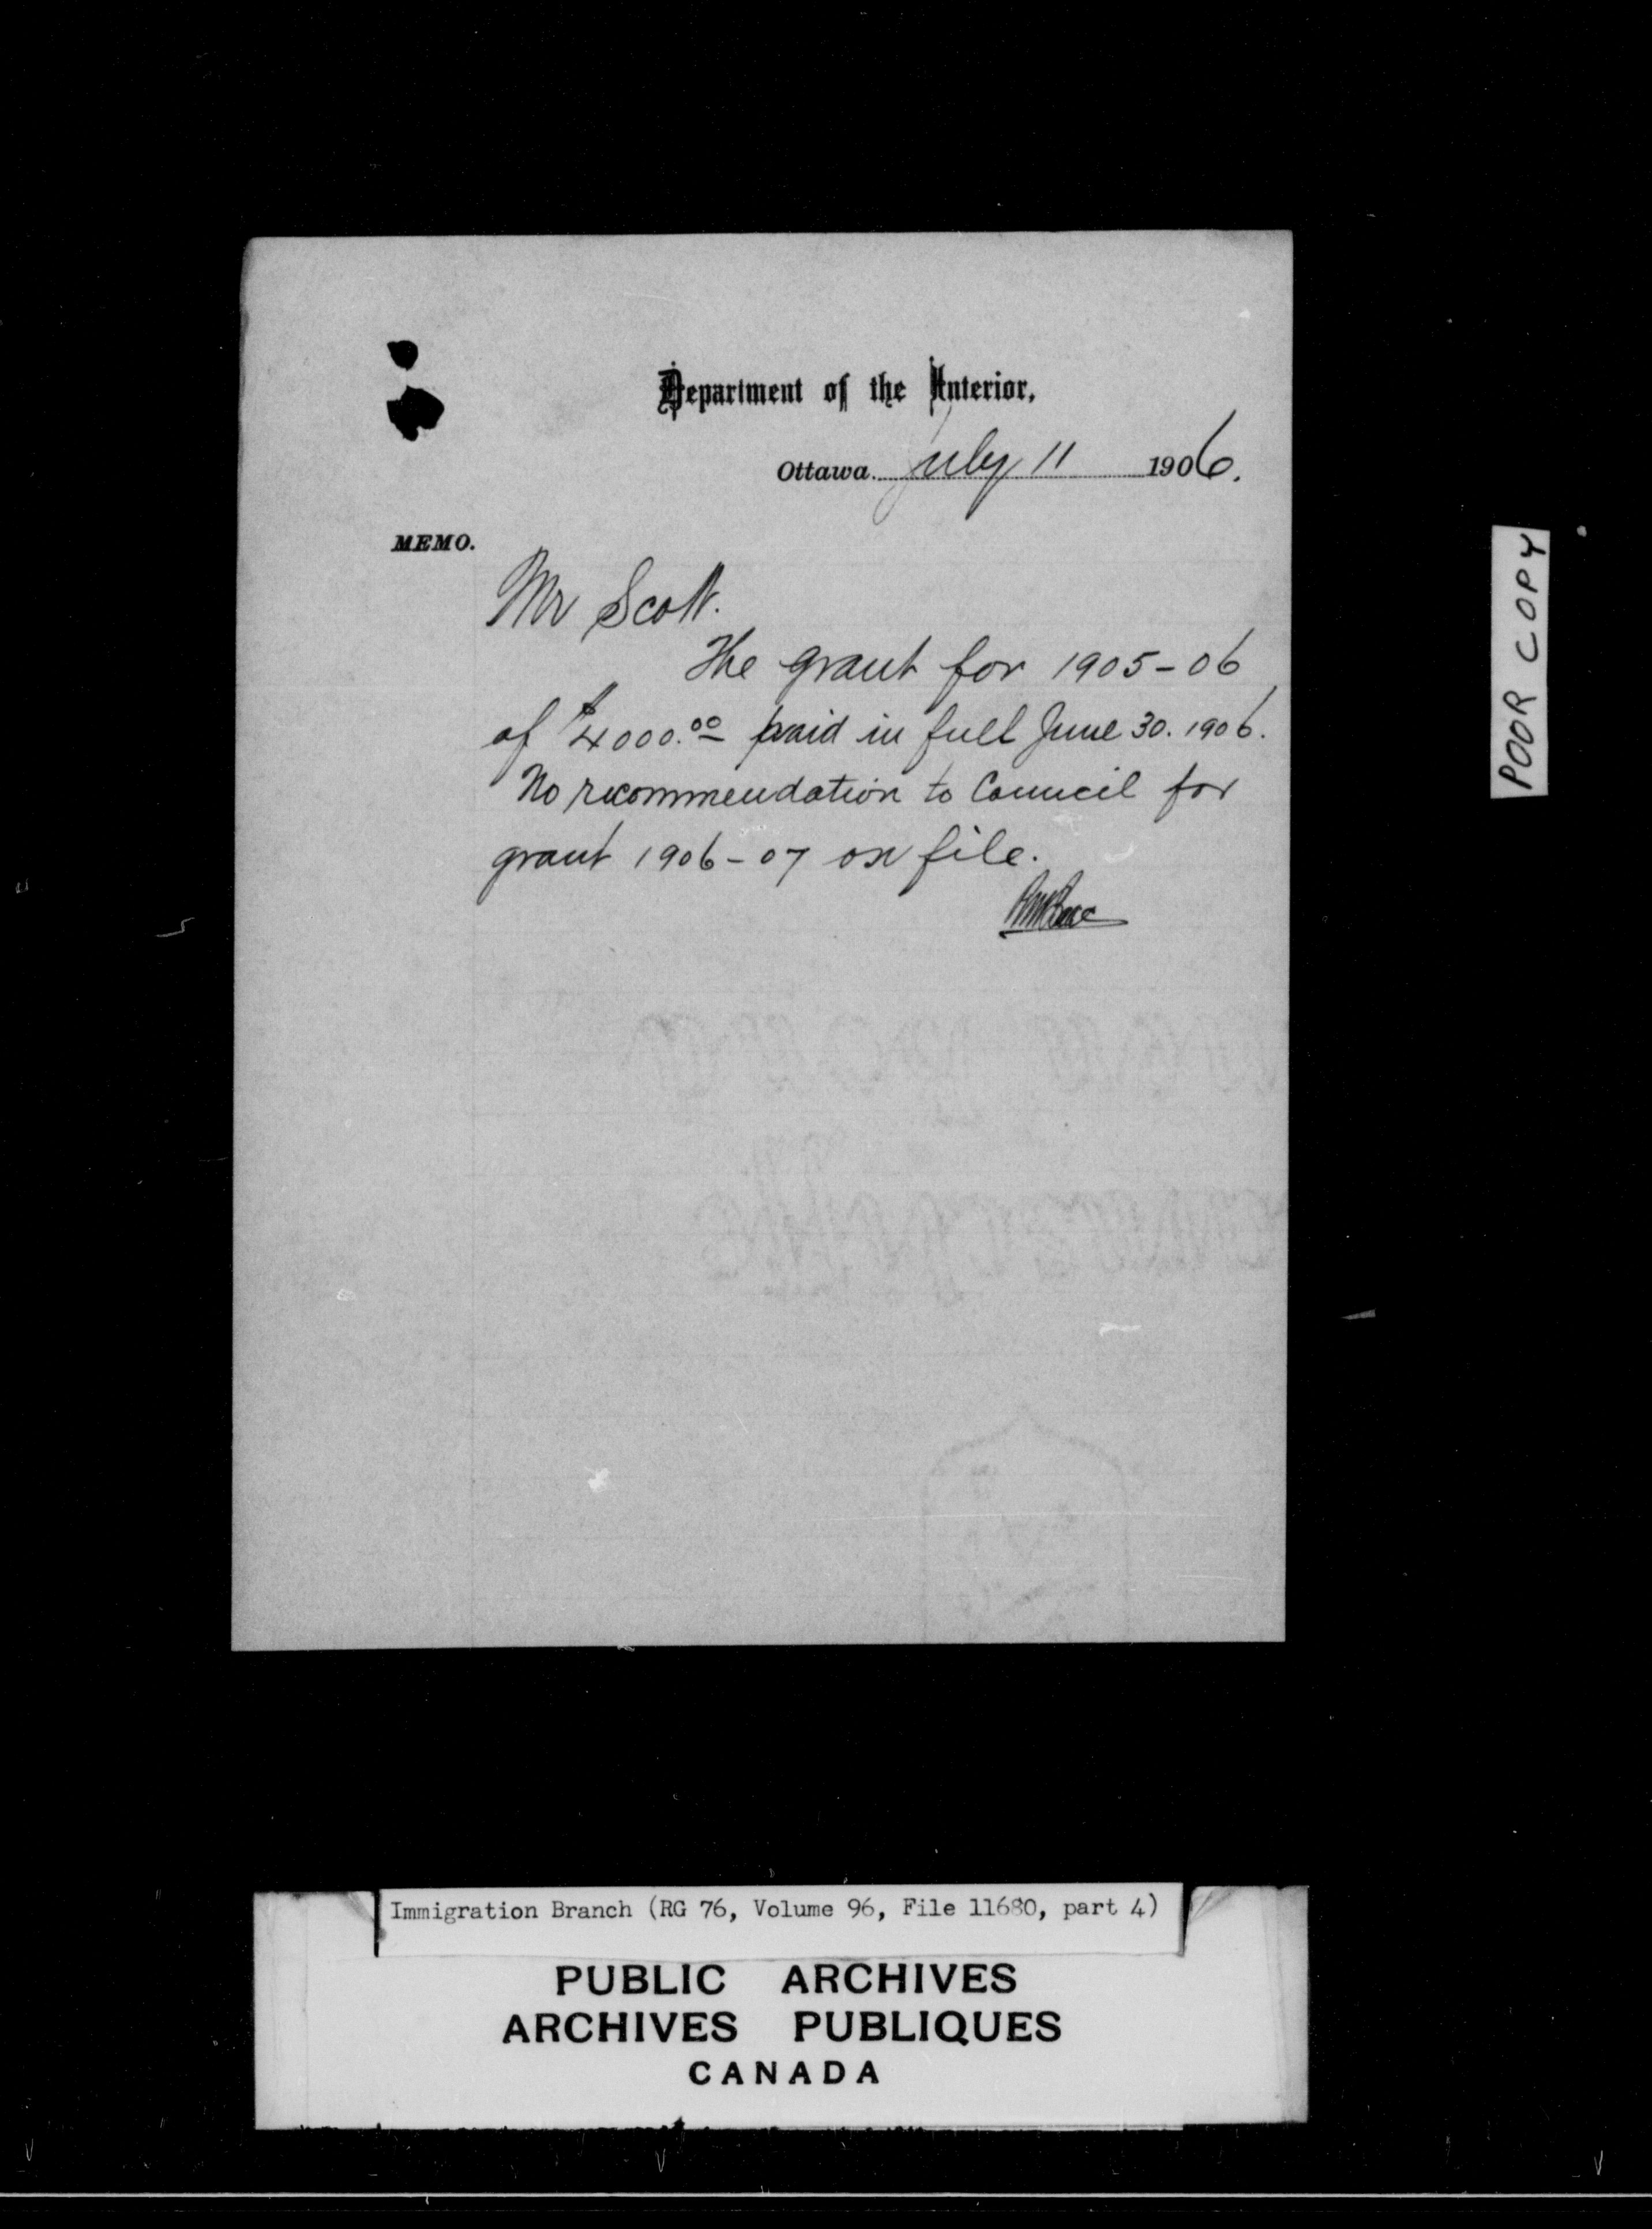 Department of the Interior,
Ottawa. July 11 1906.
MEMO.
Mr Scott.
The grant for 1905-06
of $4000.00 paid in full June 30. 1906.
No recommendation to Council for
grant 1906-07 on file.
POOR COPY
Immigration Branch (RG 76, Volume 96, File 11680, part 4)
PUBLIC ARCHIVES
ARCHIVES PUBLIQUES
CANADA